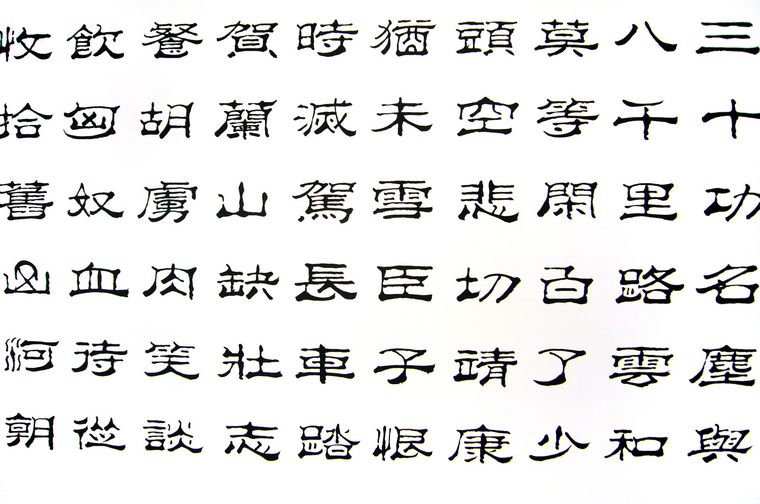 三十功名塵與
八千里路雲和
莫等閑白了少
頭空悲切靖康
猶未雪臣子恨
時滅駕長車踏
賀蘭山缺壯志
餐胡虜肉笑談
飲匈奴血待從
收拾舊山河朝